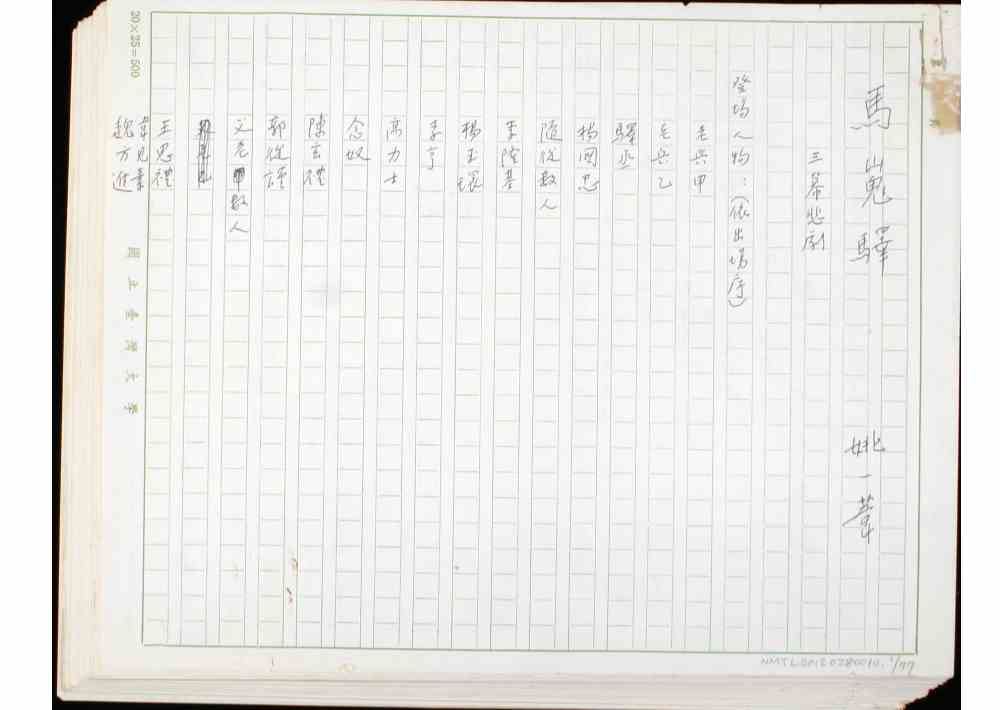 馬嵬驛 姚一葦
三幕悲劇
登場人物：(依出場序)
老兵甲
老兵乙
驛丞
楊國忠
隨從數人
李隆基
楊玉環
李亨
高力士
念奴
陳玄禮
郭從謹
父老數人
王思禮
韋見素
魏方進
國立臺灣大學
20×25=500